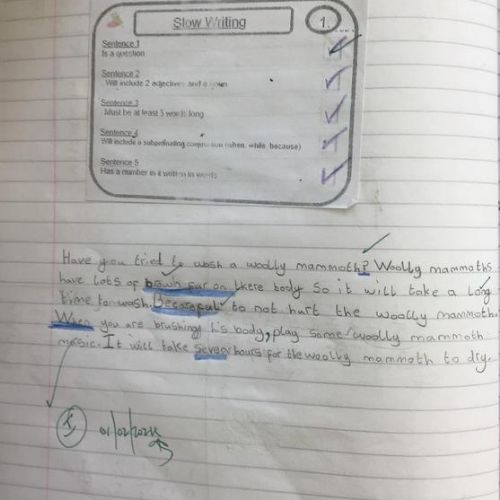 Slow Writing
1.
Sentence 1
Is a question
Sentence 2
Will include 2 adjectives and a noun
Sentence 3
Must be at least 5 words long
Sentence 4
Will include a subordinating conjunction (when, while, because)
Sentence 5
Has a number in it written in words
Have you tried to wash a woolly mammoth? Woolly mammoths
have lots of brown fur on there body so it will take a long
time for wash. Be careful to not hurt the woolly mammoth.
When you are brushing his body, play some woolly mammoth
music. It will take seven hours for the woolly mammoth to dry.